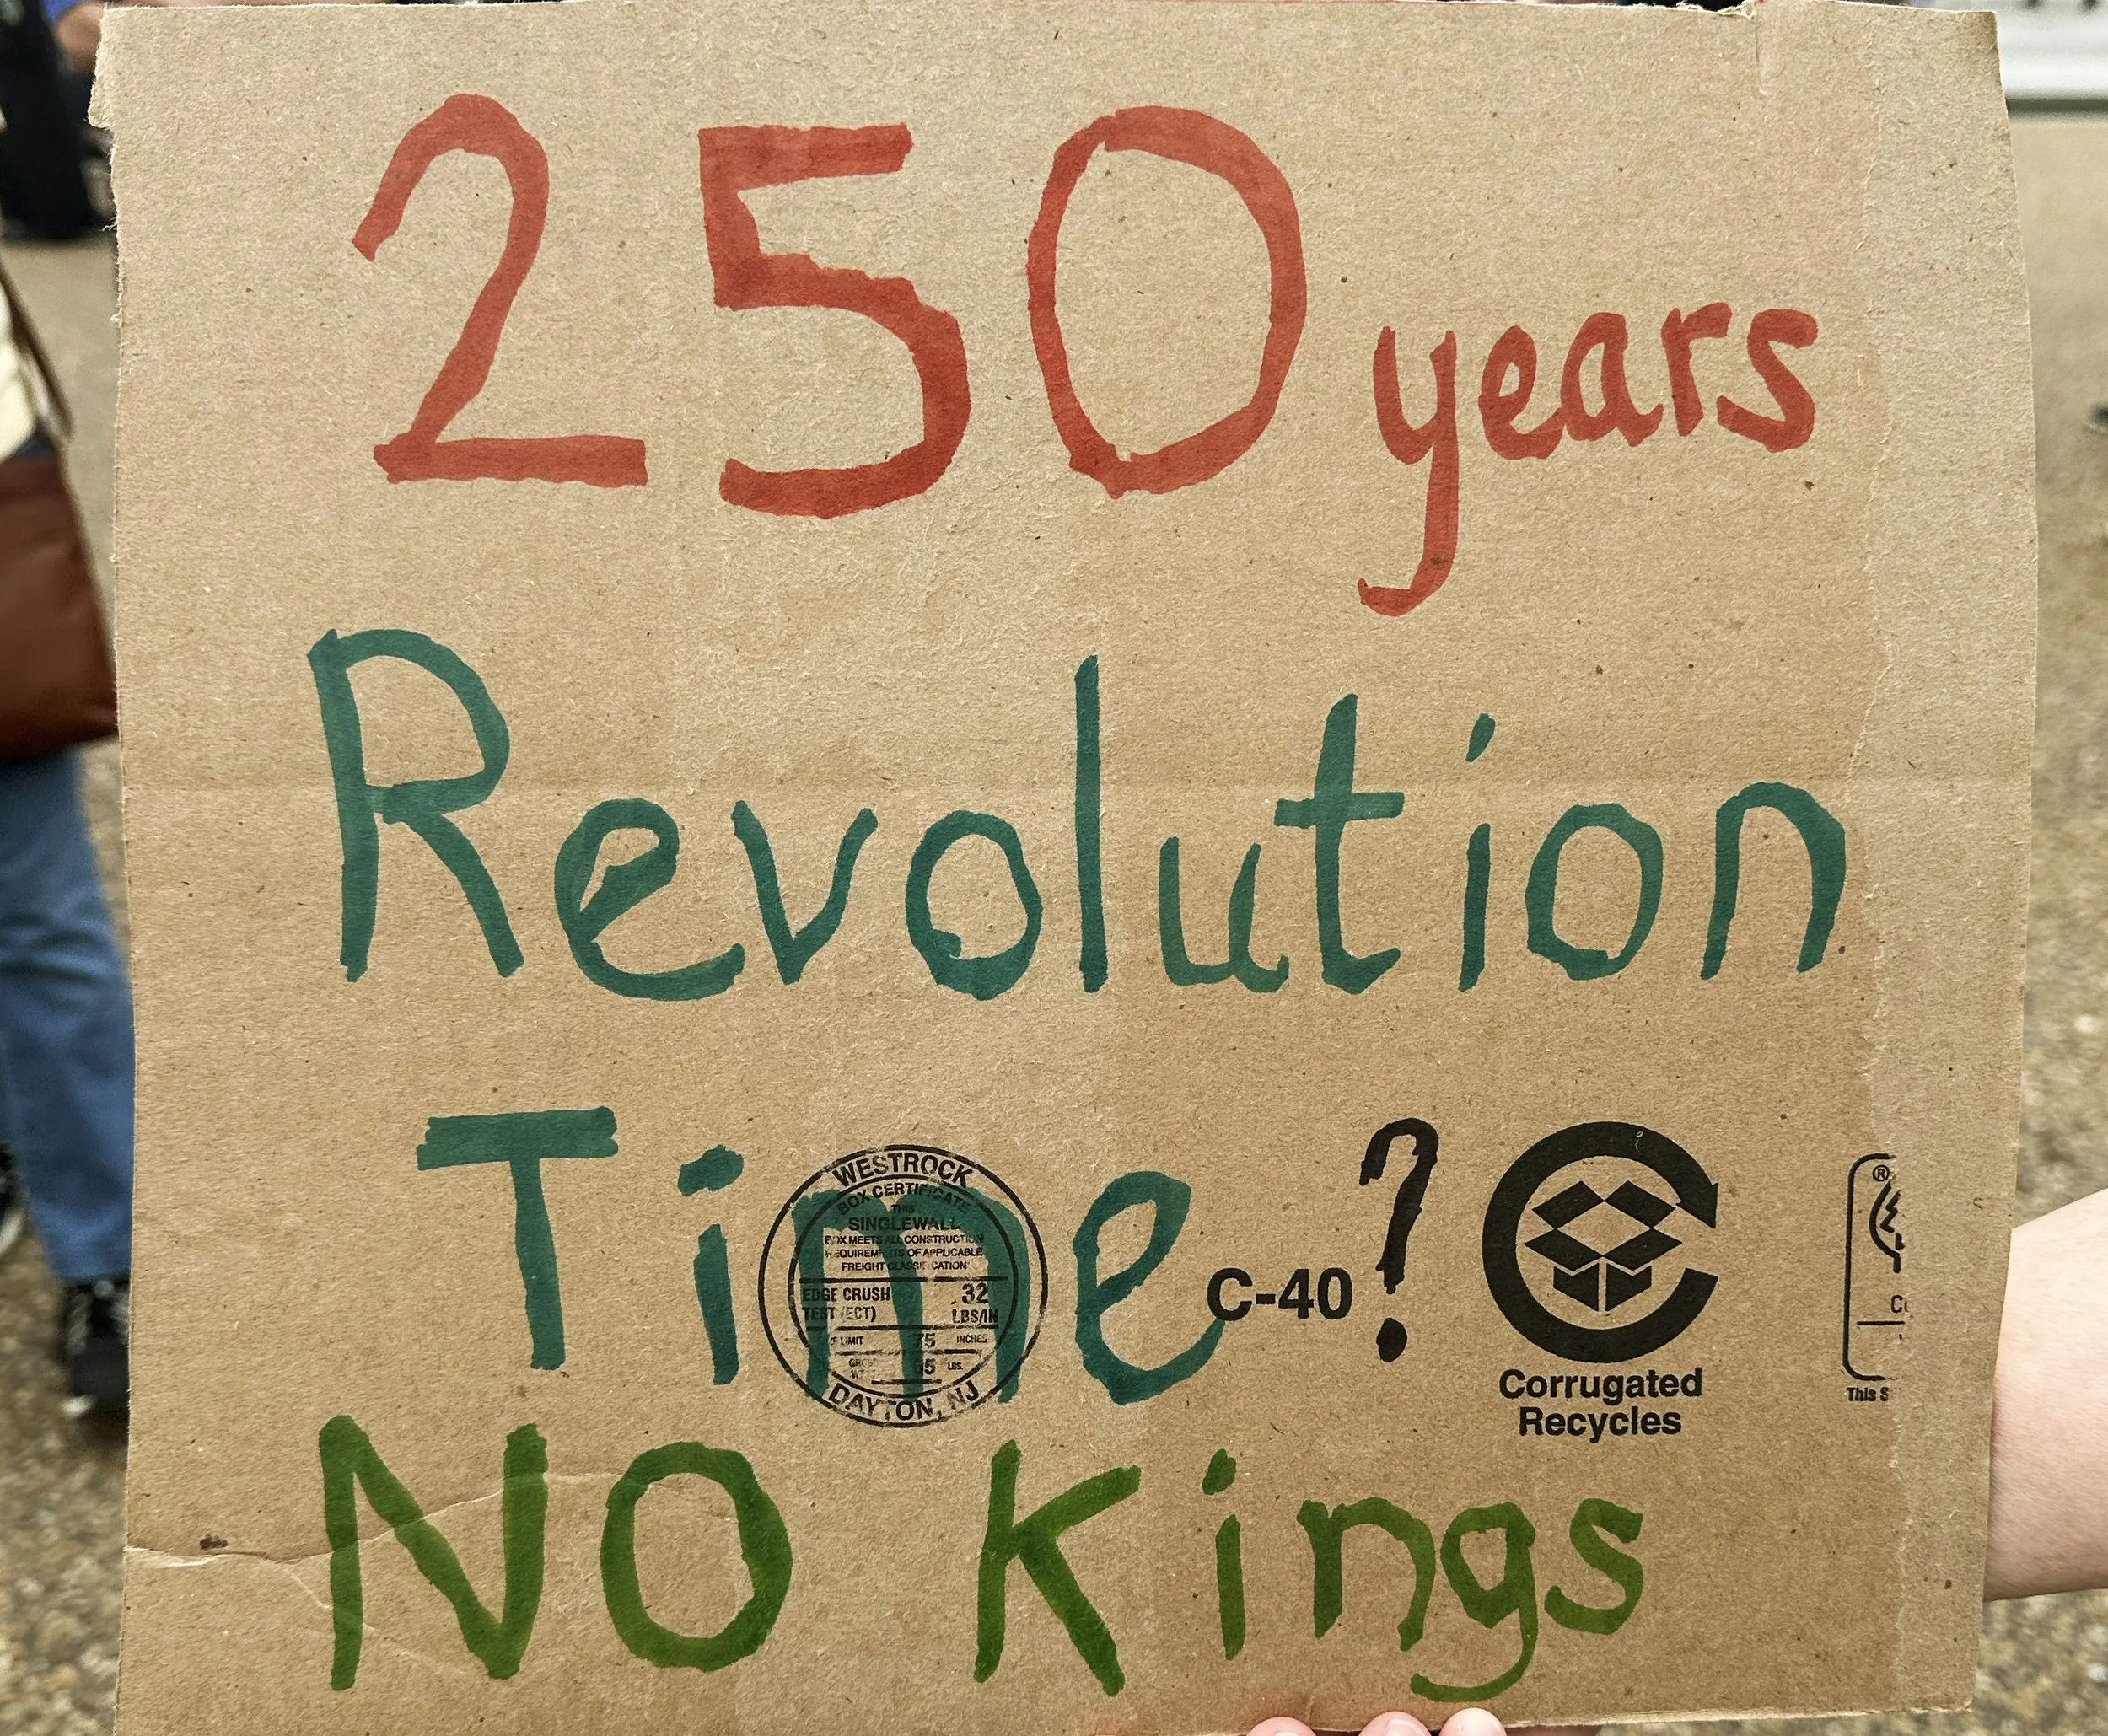 250 years
Revolution
Time ?
WESTROCK
BOX CERTIFICATE
THIS
SINGLEWALL
BOX MEETS ALL CONSTRUCTION
REQUIREMENTS OF APPLICABLE
FREIGHT CLASSIFICATION
EDGE CRUSH 32
TEST (ECT) LBS/IN
LIMIT 75 INCHES
LBS.
DAYTON, NJ
C-40
Corrugated
Recycles
®
This S
NO Kings